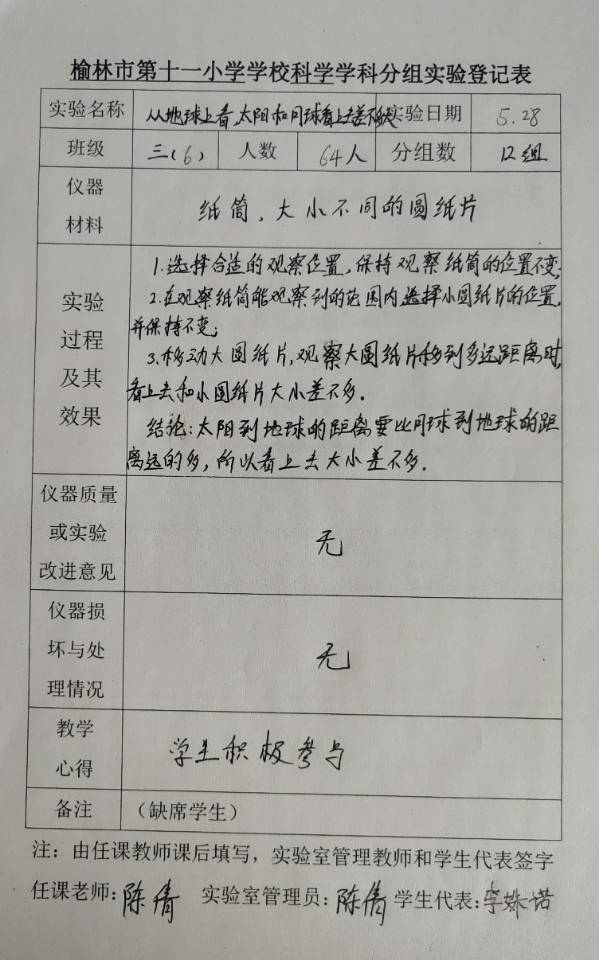 榆林市第十一小学学校科学学科分组实验登记表
实验名称 从地球上看,太阳和月球看上去差不多大 实验日期 5.28
班级 三(6) 人数 64人 分组数 12组
仪器
材料
纸筒,大小不同的圆纸片
实验
过程
及其
效果
1.选择合适的观察位置,保持观察纸筒的位置不变;
2.在观察纸筒能观察到的范围内选择小圆纸片的位置,
并保持不变;
3.移动大圆纸片,观察大圆纸片移到多远距离时,
看上去和小圆纸片大小差不多.
结论:太阳到地球的距离要比月球到地球的距
离远的多,所以看上去大小差不多.
仪器质量
或实验
改进意见
无
仪器损
坏与处
理情况
无
教学
心得
学生积极参与
备注 (缺席学生)
注:由任课教师课后填写,实验室管理教师和学生代表签字
任课老师:陈倩 实验室管理员:陈倩 学生代表:李姝诺